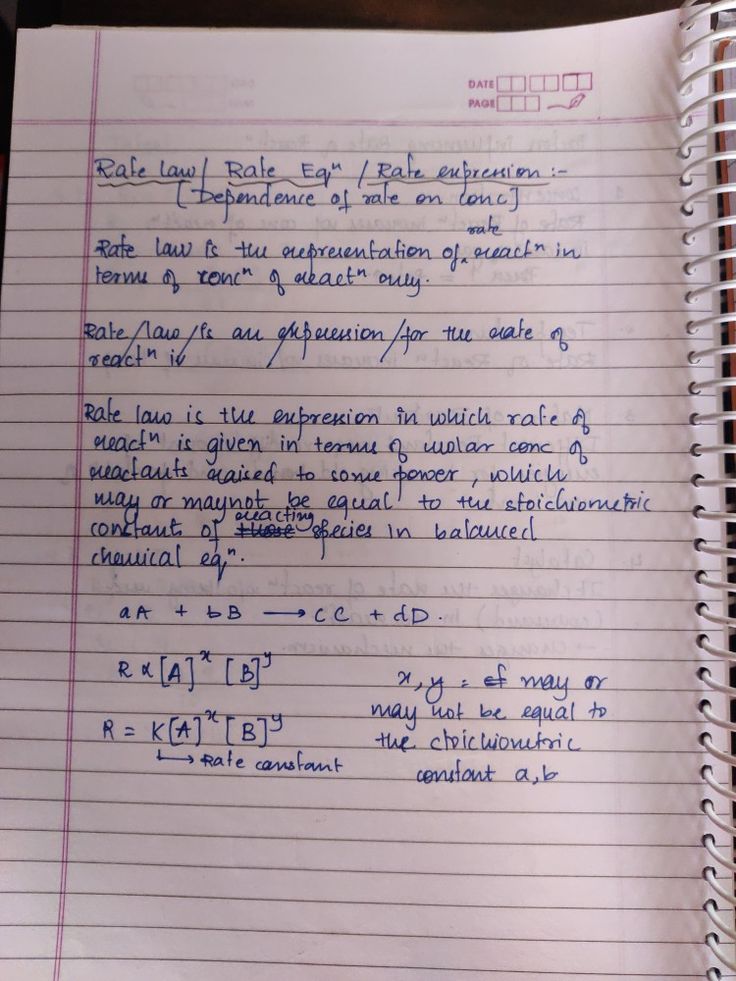 DATE
PAGE
Rate law / Rate Eqⁿ / Rate expression :-
[Dependence of rate on conc]
rate
Rate law is the representation of ‸ reactⁿ in
terms of concⁿ of reactⁿ only.
Rate law is an expression for the rate of
reactⁿ is
Rate law is the expression in which rate of
reactⁿ is given in terms of molar conc of
reactants raised to some power, which
may or maynot be equal to the stoichiometric
reacting
constants of those species in balanced
chemical eqⁿ.
aA + bB → cC + dD.
R ∝ [A]ˣ [B]ʸ
x, y = of may or
may not be equal to
R = K[A]ˣ [B]ʸ
the ctoichiometric
↳ Rate constant
constant a,b